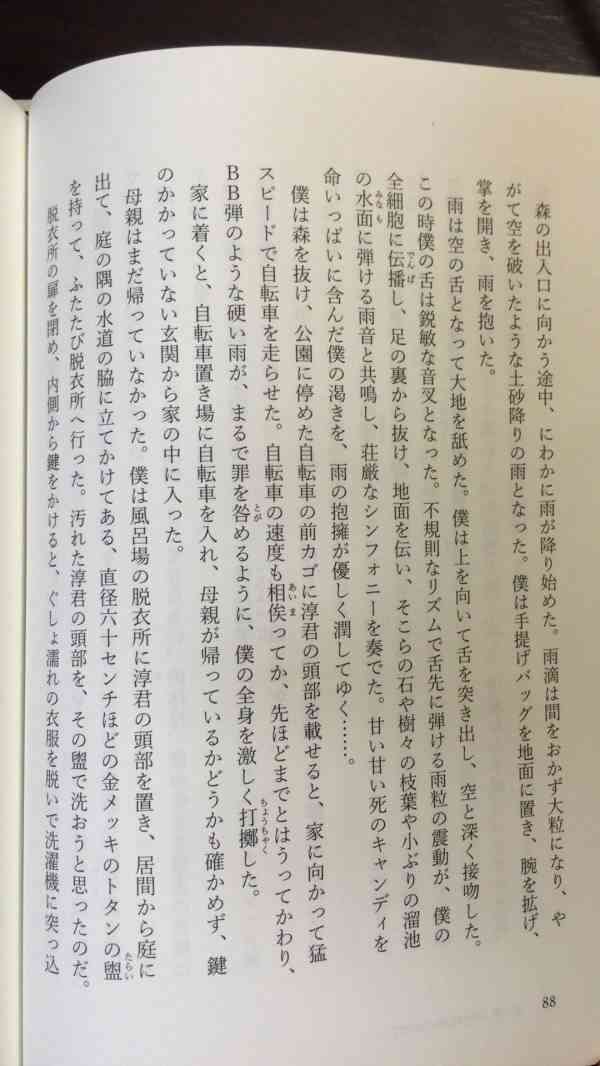 森の出入口に向かう途中、にわかに雨が降り始めた。雨滴は間をおかず大粒になり、や
がて空を破いたような土砂降りの雨となった。僕は手提げバッグを地面に置き、腕を拡げ、
掌を開き、雨を抱いた。
雨は空の舌となって大地を舐めた。僕は上を向いて舌を突き出し、空と深く接吻した。
この時僕の舌は鋭敏な音叉となった。不規則なリズムで舌先に弾ける雨粒の震動が、僕の
全細胞に伝播し、足の裏から抜け、地面を伝い、そこらの石や樹々の枝葉や小ぶりの溜池
の水面に弾ける雨音と共鳴し、荘厳なシンフォニーを奏でた。甘い甘い死のキャンディを
命いっぱいに含んだ僕の渇きを、雨の抱擁が優しく潤してゆく……。
僕は森を抜け、公園に停めた自転車の前カゴに淳君の頭部を載せると、家に向かって猛
スピードで自転車を走らせた。自転車の速度も相俟ってか、先ほどまでとはうってかわり、
BB弾のような硬い雨が、まるで罪を咎めるように、僕の全身を激しく打擲した。
家に着くと、自転車置き場に自転車を入れ、母親が帰っているかどうかも確かめず、鍵
のかかっていない玄関から家の中に入った。
母親はまだ帰っていなかった。僕は風呂場の脱衣所に淳君の頭部を置き、居間から庭に
出て、庭の隅の水道の脇に立てかけてある、直径六十センチほどの金メッキのトタンの盥
を持って、ふたたび脱衣所へ行った。汚れた淳君の頭部を、その盥で洗おうと思ったのだ。
脱衣所の扉を閉め、内側から鍵をかけると、ぐしょ濡れの衣服を脱いで洗濯機に突っ込
88